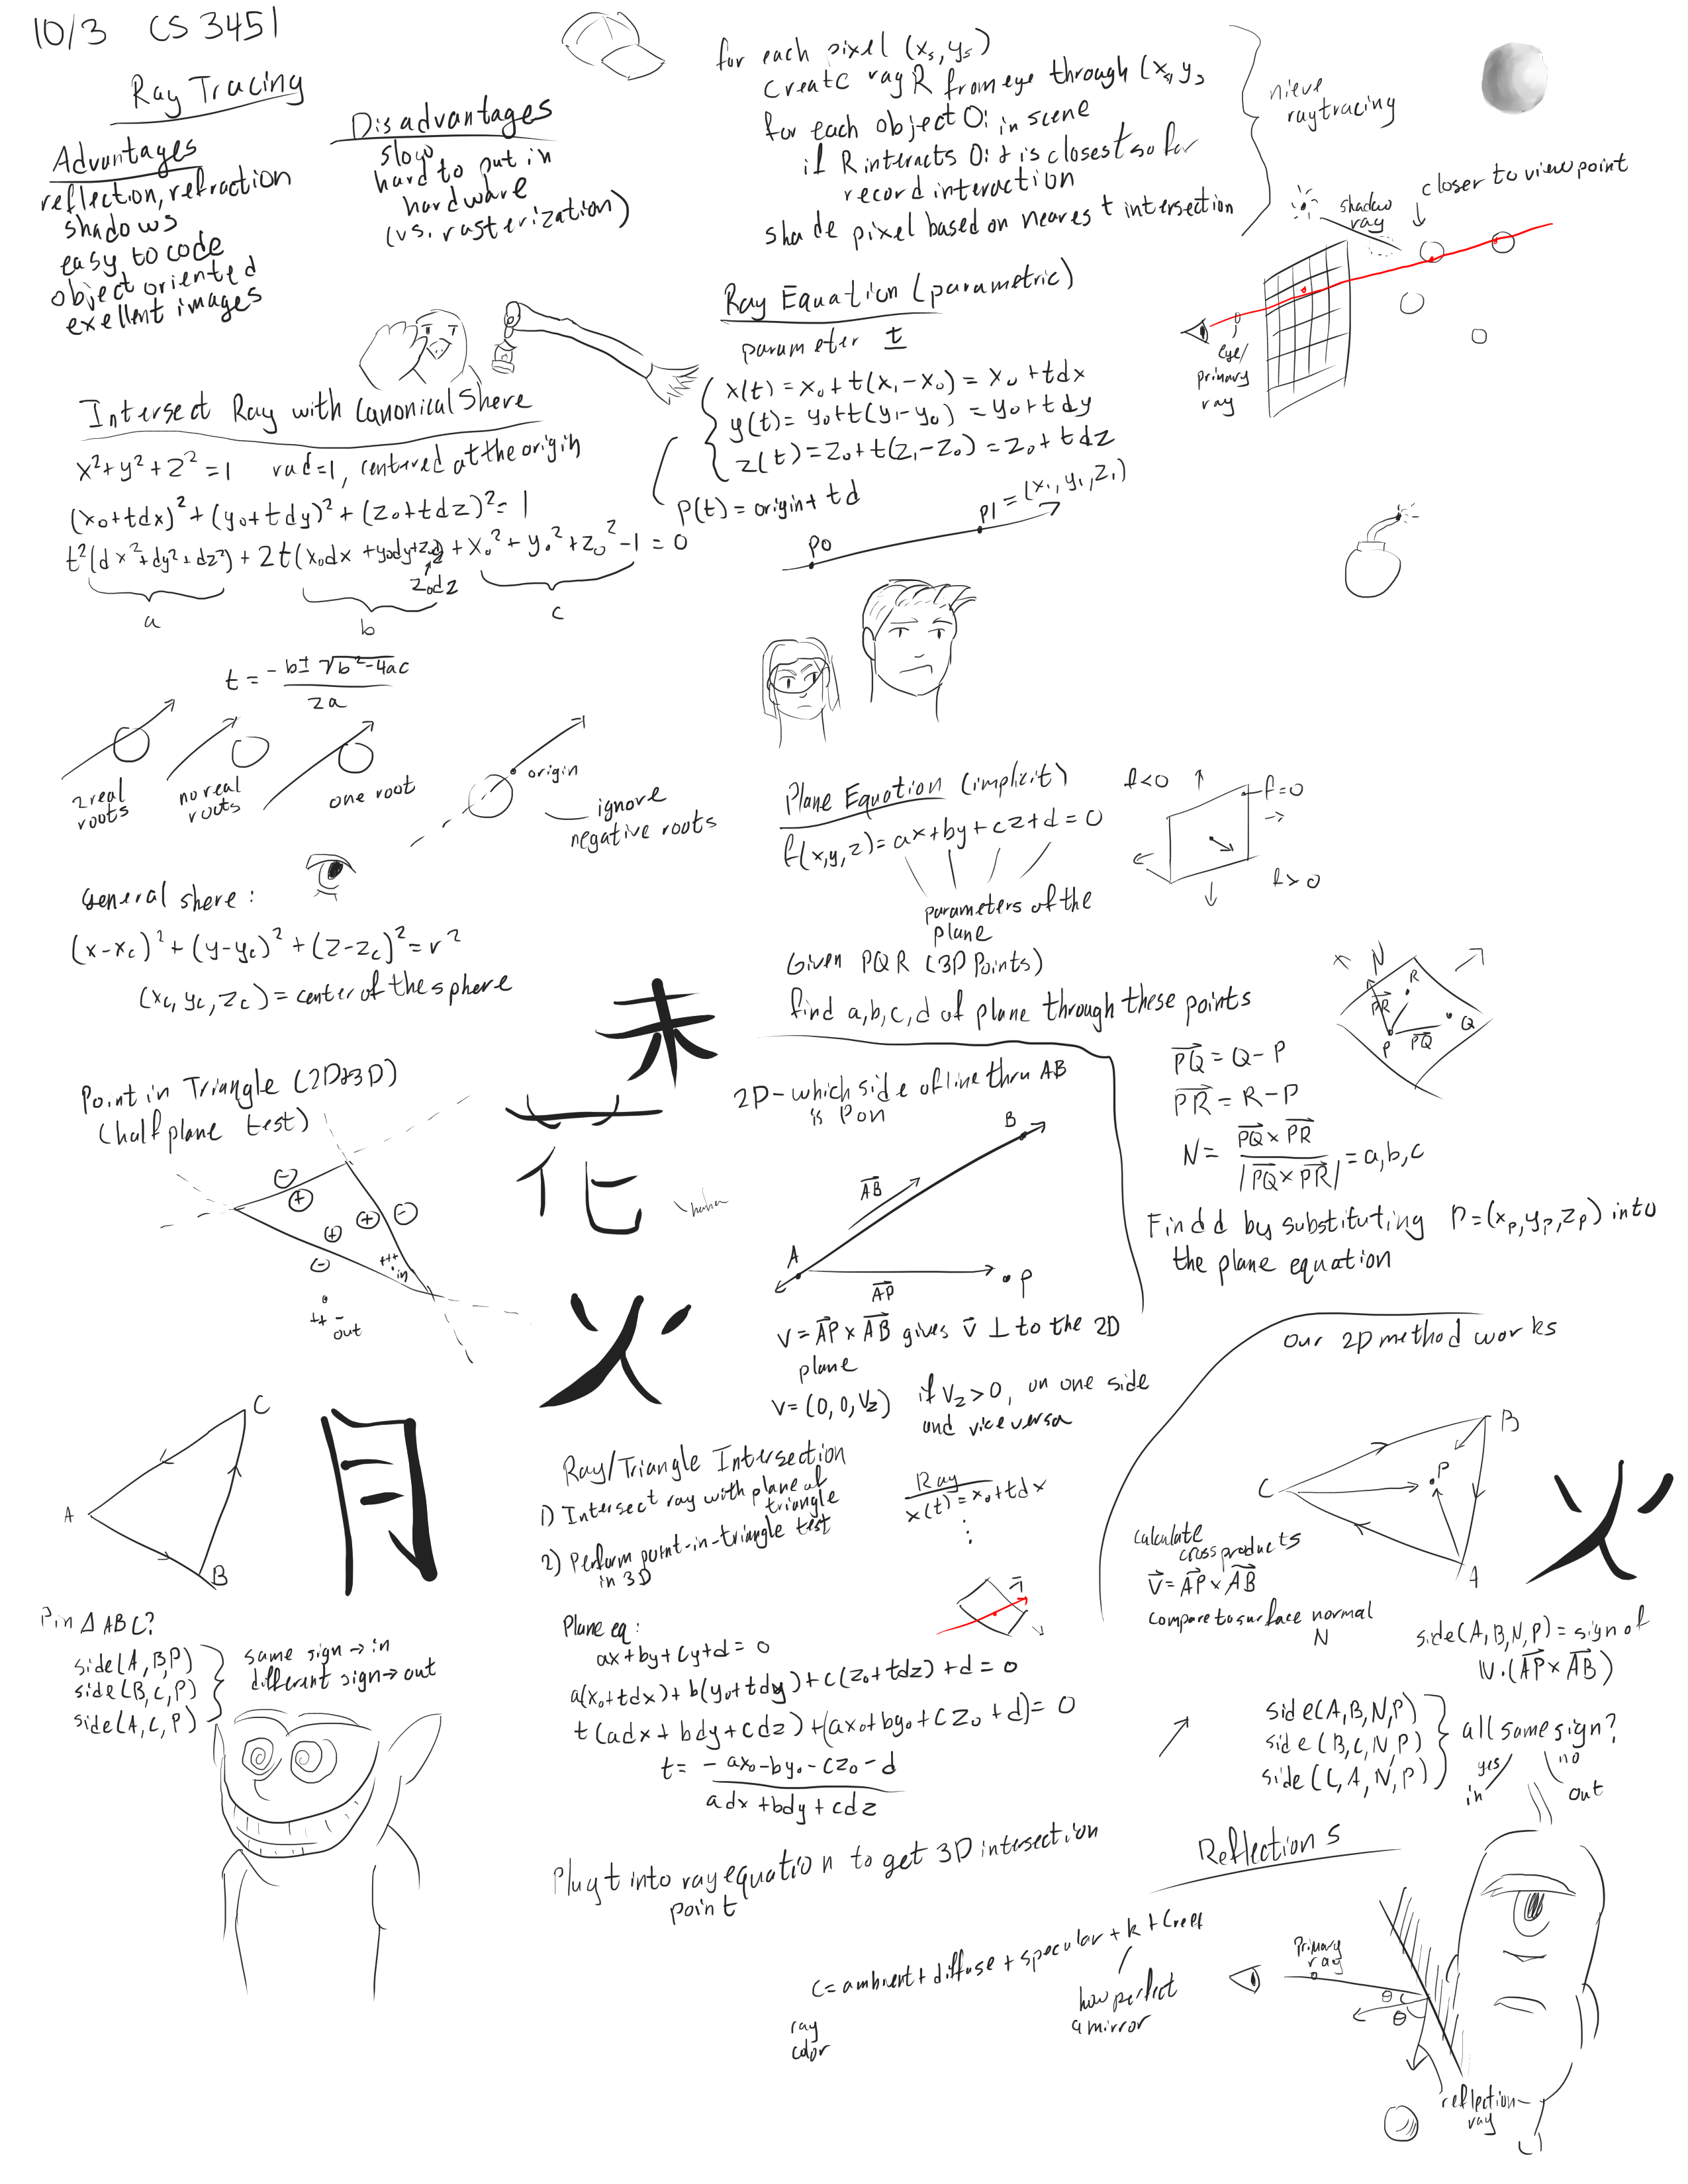 10/3 CS 3451
Ray Tracing
Advantages
reflection, refraction
shadows
easy to code
object oriented
exellent images
Disadvantages
slow
hard to put in
hardware
(vs. rasterization)
for each pixel (xs, ys)
create ray R from eye through (xs, ys
for each object Oi in scene
if R interacts Oi & is closest so far
record interaction
shade pixel based on nearest intersection
nieve
raytracing
shadow
ray
closer to view point
eye/
primary
ray
Ray Equation (parametric)
parameter t
x(t) = x₀ + t(x₁-x₀) = x₀ + tdx
y(t) = y₀+t(y₁-y₀) = y₀+tdy
z(t) = z₀+t(z₁-z₀) = z₀+tdz
p(t) = origin + td
p0
p1 = (x₁, y₁, z₁)
Intersect Ray with Canonical Shere
x²+y²+z²=1 rad=1, centered at the origin
(x₀+tdx)²+(y₀+tdy)²+(z₀+tdz)²=1
t²(dx²+dy²+dz²) + 2t(x₀dx+y₀dy+z₀dz) + x₀²+y₀²+z₀²-1 = 0
z₀dz
a
b
c
t = -b±√b²-4ac
2a
2 real
roots
no real
roots
one root
origin
ignore
negative roots
General shere:
(x-xc)²+(y-yc)²+(z-zc)²=r²
(xc, yc, zc) = center of the sphere
Plane Equation (implicit)
f(x,y,z) = ax+by+cz+d = 0
parameters of the
plane
f<0
f=0
f>0
Given PQR (3D Points)
find a,b,c,d of plane through these points
N
R
PR
P
PQ
Q
PQ = Q-P
PR = R-P
N = PQ×PR
|PQ×PR| = a,b,c
Find d by substituting P=(xp, yp, zp) into
the plane equation
Point in Triangle (2D&3D)
(half plane test)
-
+
+
-
+
-
+++
in
++-
out
未
花
haha
火
月
2D-which side of line thru AB
is P on
B
AB
A
AP
P
v = AP × AB gives v ⊥ to the 2D
plane
v = (0,0,Vz) if Vz>0, on one side
and vice versa
A
B
C
P in △ABC?
side(A,B,P)
side(B,C,P)
side(A,C,P)
same sign → in
different sign → out
Ray/Triangle Intersection
1) Intersect ray with plane of
triangle
2) Perform point-in-triangle test
in 3D
Ray
x(t) = x₀+tdx
⋮
Plane eq:
ax+by+cy+d = 0
a(x₀+tdx)+b(y₀+tdy)+c(z₀+tdz)+d = 0
t(adx+bdy+cdz)+(ax₀+by₀+cz₀+d) = 0
t = -ax₀-by₀-cz₀-d
adx+bdy+cdz
Plug t into ray equation to get 3D intersection
point
our 2D method works
B
C
P
A
火
calculate
cross products
v = AP × AB
compare to surface normal
N
side(A,B,N,P) = sign of
N·(AP×AB)
side(A,B,N,P)
side(B,C,N,P)
side(C,A,N,P)
all same sign?
yes
in
no
out
Reflections
c = ambient + diffuse + specular + k + Crefl
ray
color
how perfect
a mirror
Primary
ray
θ
θ
reflection
ray